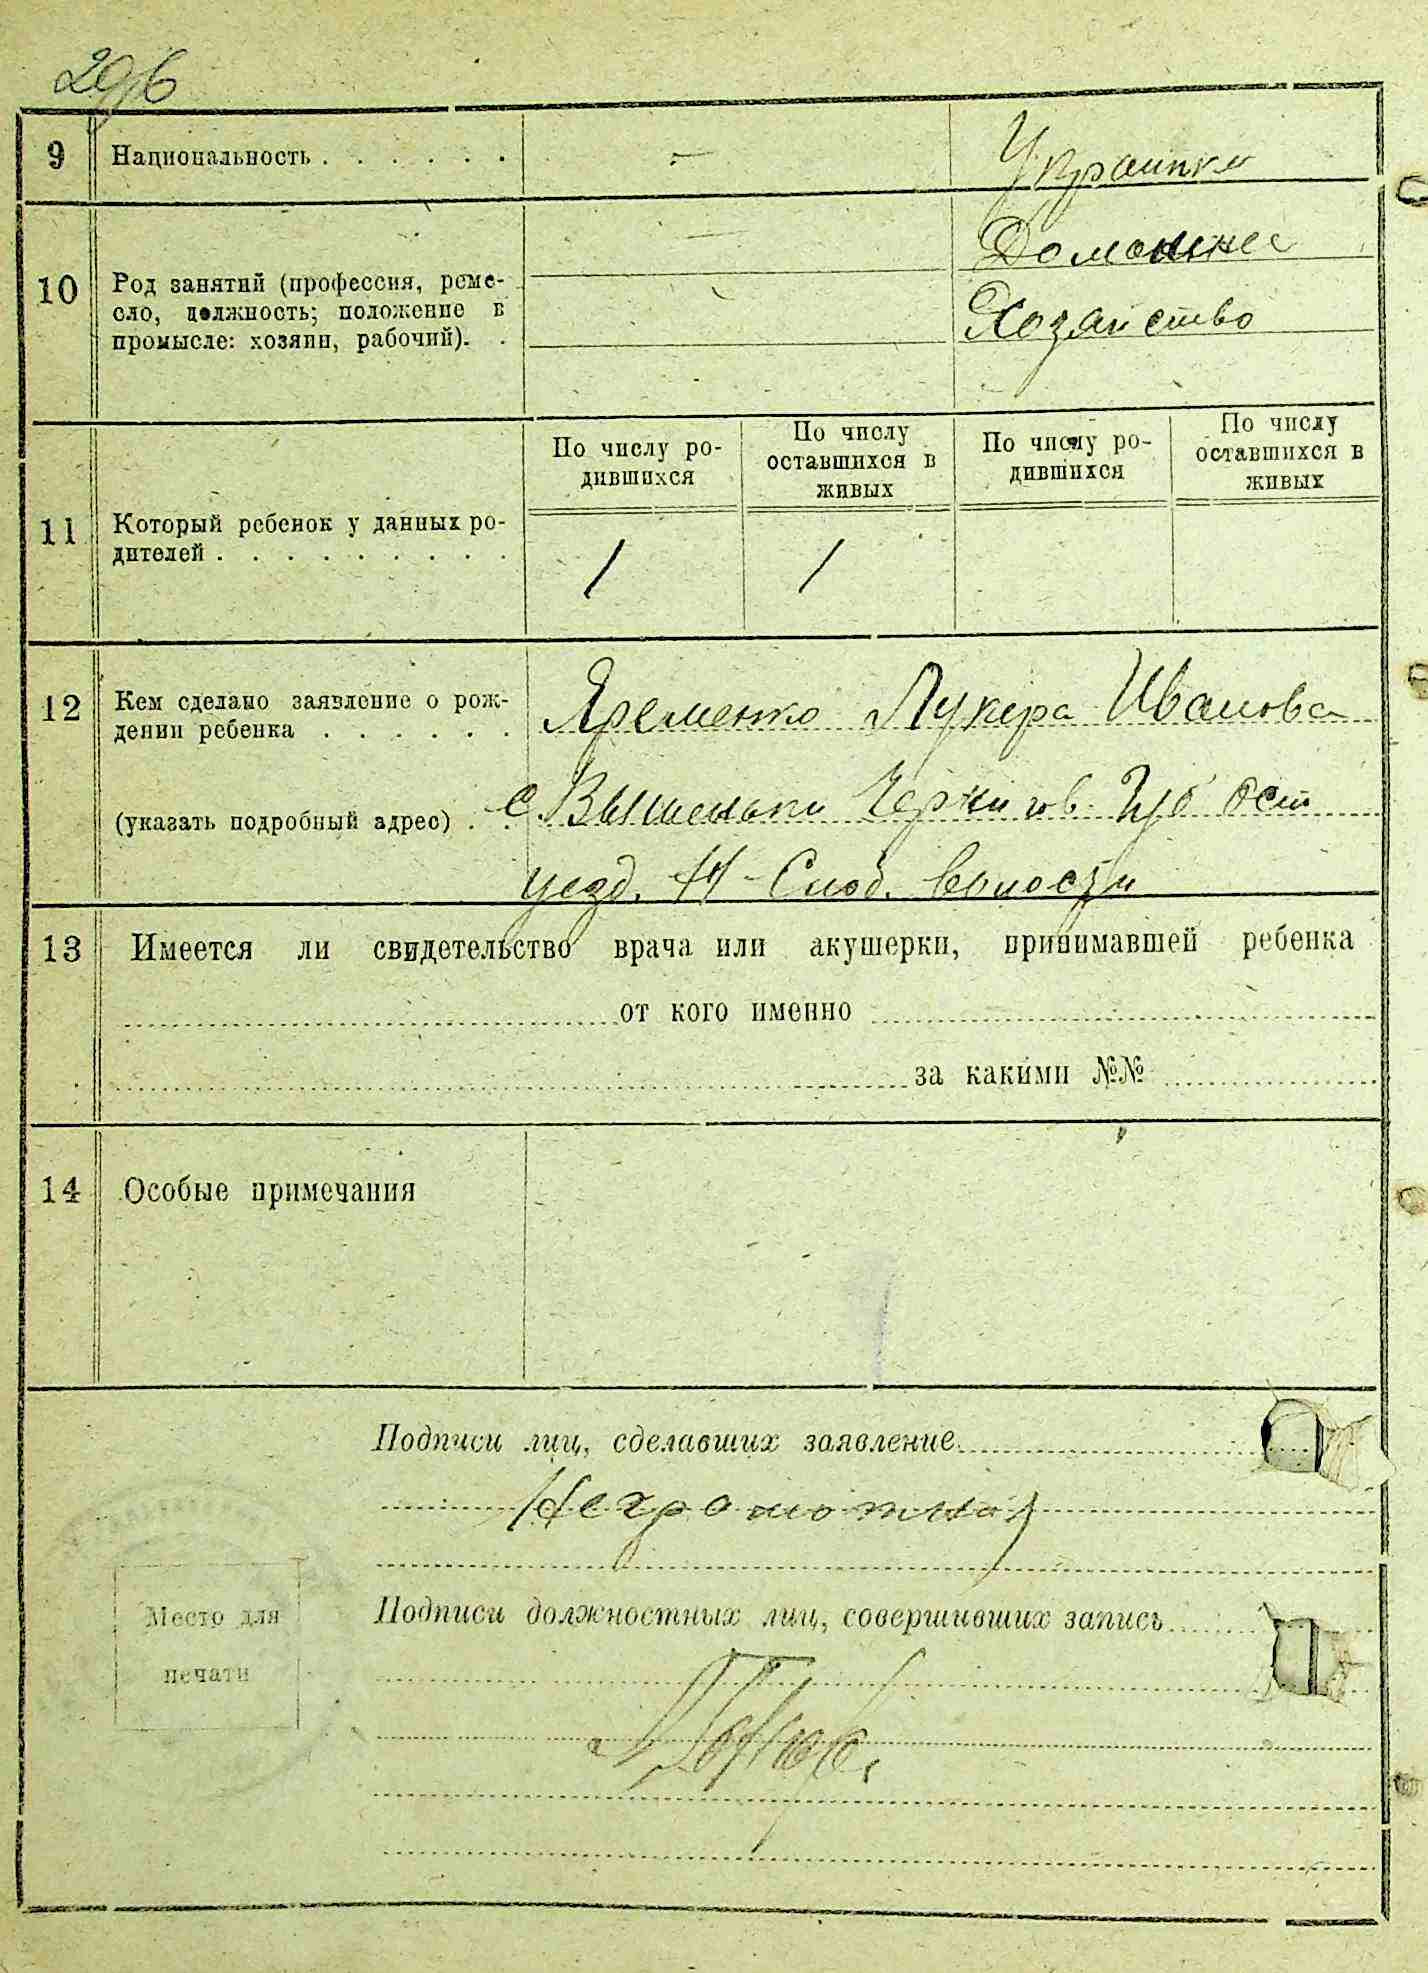 296
9 Национальность . . . . . . — Украинка
10 Род занятий (профессия, реме-
сло, должность; положение в
промысле: хозяин, рабочий). .
— Домашнее
Хозяйство
11 Который ребенок у данных ро-
дителей . . . . . . . . .
По числу ро-
дившихся
По числу
оставшихся в
живых
По числу ро-
дившихся
По числу
оставшихся в
живых
1 1
12 Кем сделано заявление о рож-
дении ребенка . . . . . .
(указать подробный адрес) . .
Яременко Лукера Иванова
с. Вышеньки Чернигов. Губ Ост
уезд. Н-Слоб. волости
13 Имеется ли свидетельство врача или акушерки, принимавшей ребенка
от кого именно
за какими №№
14 Особые примечания
Подписи лиц, сделавших заявление
(Неграмотная)
Место для
печати
Подписи должностных лиц, совершивших запись